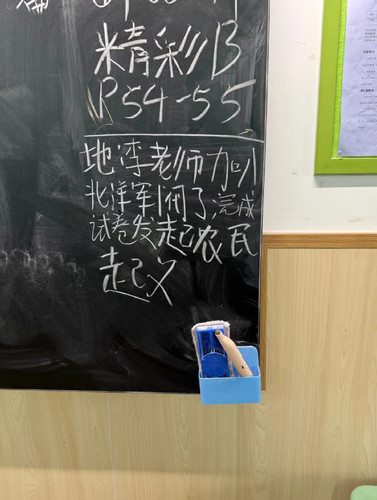 精彩B
P54-55
地李老师加叭
北洋军阀了,完成
试卷发起农民
起义